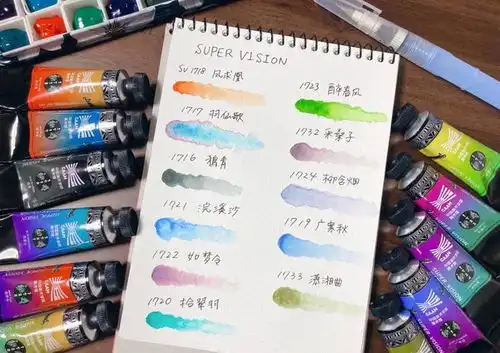 SUPER VISION
SV1718 凤求凰
1717 羽仙歌
1716 鸦青
1721 浣溪沙
1722 如梦令
1720 拾翠羽
1723 醉春风
1732 采桑子
1724 柳含烟
1719 广寒秋
1733 潇湘曲